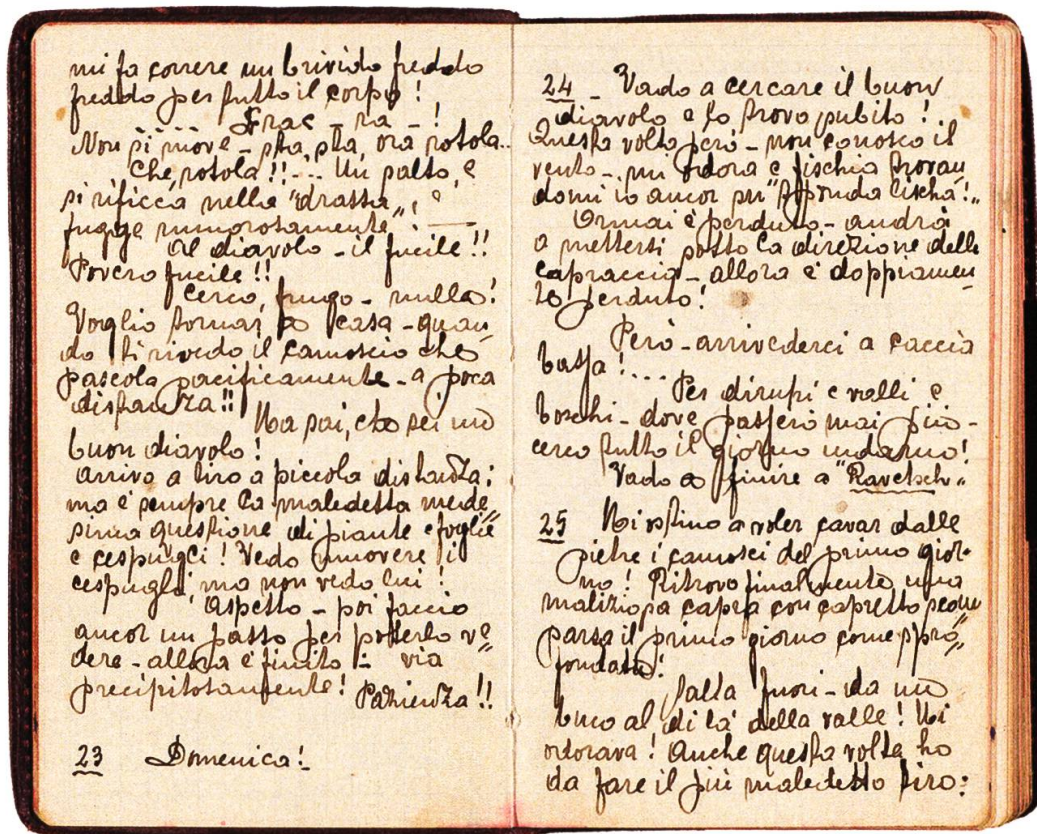 mi fa correre un brivido freddo
freddo per tutto il corpo!
Frac - ra - !
Non si move - sta, sta, ora rotola..
Che, rotola!!... Un salto, e
si rificca nella "drassa", e
fugge rumorosamente!
Al diavolo - il fucile!!
Povero fucile!!
Cerco, frugo - nulla!
Voglio tornar a casa - quan-
do ti rivedo il camoscio che
pascola pacificamente - a poca
distanza!!
Ma sai, che sei un
buon diavolo!
Arrivo a tiro a piccola distanza;
ma è sempre la maledetta mede"
sima questione di piante e foglie
e cespugli! Vedo muovere i
cespugli, ma non vedo lui!
Aspetto - poi faccio
ancor un passo per poterlo ve"
dere - allora è finito: via
precipitosamente! Pazienza!!
23 Domenica!
24 - Vado a cercare il buon
diavolo e lo trovo subito!
Questa volta però - non conosco il
vento - mi odora e fischia trovan
domi io ancor su "Sponda lischa!"
Ormai è perduto - andrà
a mettersi sotto la direzione della
capraccia - allora è doppiamen
te perduto!
Però - arrivederci a caccia
bassa!....
Per dirupi e valli e
boschi - dove passerò mai più -
cerco tutto il giorno indarno!
Vado a finire a "Ravetsch"
25 Mi ostino a voler cavar dalle
pietre i camosci del primo gior-
no! Ritrovo finalmente una
maliziosa capra con capretto scom
parsa il primo giorno come spro"
fondata!
Salta fuori - da un
buco al di là della valle! Mi
odorava! Anche questa volta ho
da fare il più maledetto tiro: